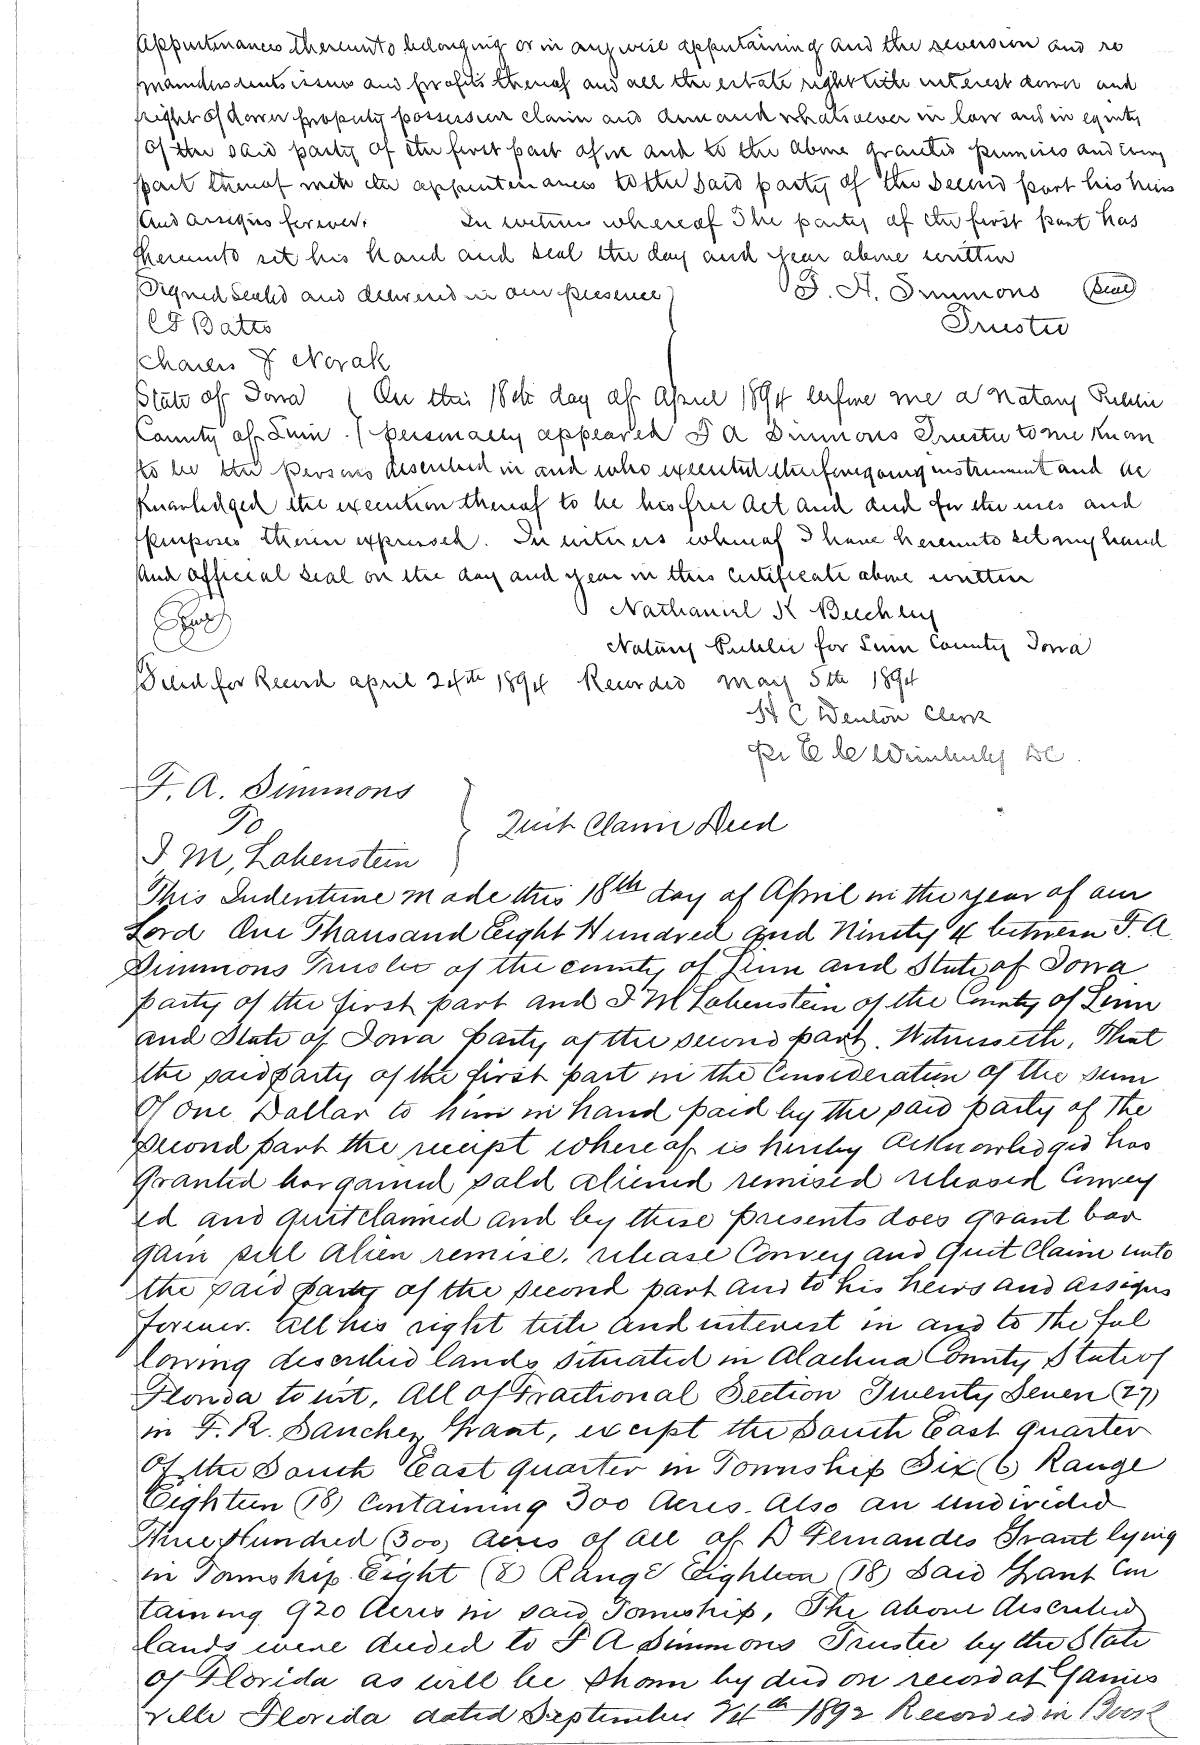 Appurtenances thereunto belonging or in anywise appertaining and the reversion and re
mainders rents issues and profits thereof and all the estate right title interest dower and
right of dower property possession claim and demand whatsoever in law and in equity
Of the said party of the first part of in and to the above granted premises and every
part thereof with the appurtenances to the said party of the second part his heirs
And assigns forever. In witness whereof The party of the first part has
thereunto set his hand and seal the day and year above written
Signed Sealed and delivered in our presence } F. A. Simmons (Seal)
C F Batts Trustee
Charles F Novak
State of Iowa ( On this 18th day of April 1894 before me a Notary Public
County of Linn ( personally appeared F A Simmons Trustee to me known
to be the persons described in and who executed the foregoing instrument and ac
Knowledged the execution thereof to be his free Act and and for the uses and
purposes therein expressed. In witness whereof I have hereunto set my hand
And official seal on the day and year in this certificate above written
(Seal) Nathaniel K Beechley
Notary Public for Linn County Iowa
Filed for Record april 24th 1894 Recorded May 5th 1894
H C Denton Clerk
Pr E C Wimberly DC.
F. A. Simmons
To } Quit Claim Deed
I M, Lobenstein
This Indenture made this 18th day of April in the year of our
Lord One Thousand Eight Hundred and Ninety 4 between F. A
Simmons Trustee of the county of Linn and State of Iowa
party of the first part and I M Lobenstein of the County of Linn
and State of Iowa party of the second part. Witnesseth, That
the said party of the first part in the Consideration of the sum
Of One Dollar to him in hand paid by the said party of the
second part the receipt whereof is hereby acknowledged has
Granted bargained sold aliened remised released Convey
ed and quitclaimed and by these presents does grant bar
gain sell alien remise, release Convey and quit Claim unto
the said party of the second part and to his heirs and assigns
forever. all his right title and interest in and to the fol
lowing described lands situated in Alachua County State of
Florida to wit, All of Fractional Section Twenty Seven (27)
in F. R. Sanchez Grant, except the South East quarter
Of the South East quarter in Township Six (6) Range
Eighteen (18) Containing 300 Acres. Also an undivided
Three Hundred (300) acres of all of D Fernandes Grant lying
in Township Eight (8) Range Eighteen (18) Said Grant Con
taining 920 Acres in said Township, The above described
lands were deeded to F A Simmons Trustee by the State
Of Florida as will be shown by deed on record at Gaines
ville Florida dated September 24th 1892 Recorded in Book